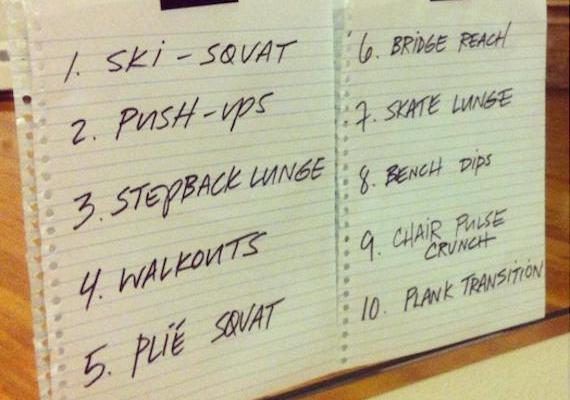 1. SKI-SQUAT
2. PUSH-UPS
3. STEPBACK LUNGE
4. WALKOUTS
5. PLIË SQUAT
6. BRIDGE REACH
7. SKATE LUNGE
8. BENCH DIPS
9. CHAIR PULSE
CRUNCH
10. PLANK TRANSITION